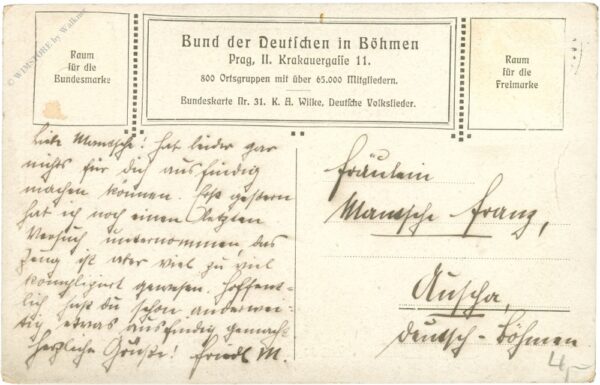 © WIMSTORE by Walkner
Raum
für die
Bundesmarke
Bund der Deutschen in Böhmen
Prag, II. Krakauergasse 11.
800 Ortsgruppen mit über 65.000 Mitgliedern.
Bundeskarte Nr. 31. K. A. Wilke, Deutsche Volkslieder.
Raum
für die
Freimarke
Liebe Mantsche! hat leider gar
nichts für dich ausfindig
machen können. Erst gestern
hat ich noch einen letzten
Versuch unternommen, das
Zeug ist aber viel zu viel
kompliziert gewesen. Hoffent-
lich hast du schon anderwei-
tig etwas ausfindig gemacht.
Herzliche Grüße! Friedl M.
Fräulein
Mantsche Franz,
Auscha,
Deutsch-Böhmen
4,-